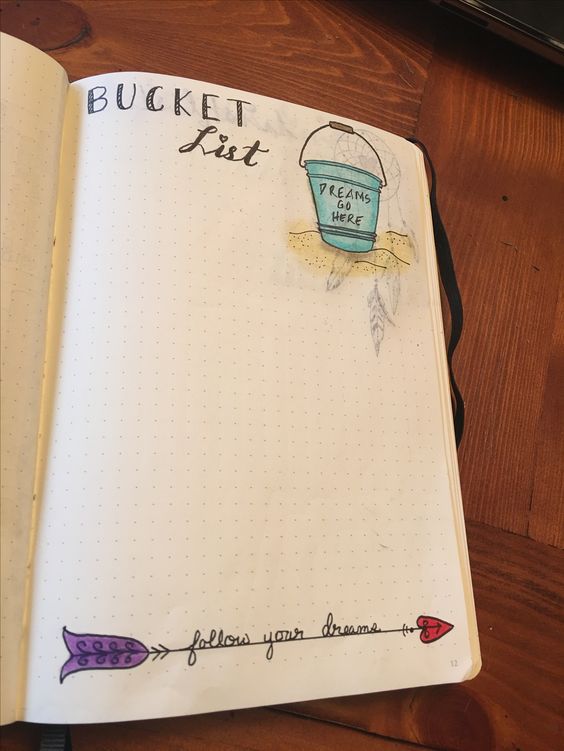 BUCKET
List
DREAMS
GO
HERE
follow your dreams